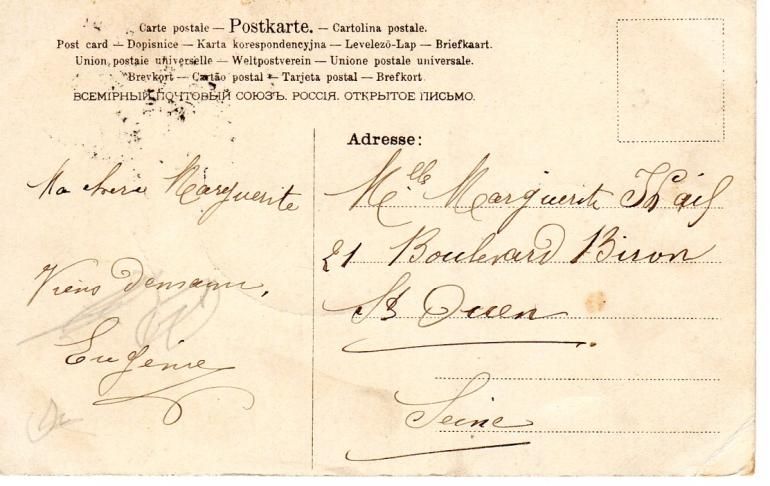 Carte postale — Postkarte. — Cartolina postale.
Post card — Dopisnice — Karta korespondencyjna — Levelező-Lap — Briefkaart.
Union postale universelle — Weltpostverein — Unione postale universale.
Brevkort — Cartão postal — Tarjeta postal — Brefkort
ВСЕМІРНЫЙ ПОЧТОВЫЙ СОЮЗЪ. РОССІЯ. ОТКРЫТОЕ ПИСЬМО.
Adresse:
Ma chere Marguerite
Viens demain,
Eugénie
Mlle Marguerite
21 Boulevard Biron
St Ouen
Seine